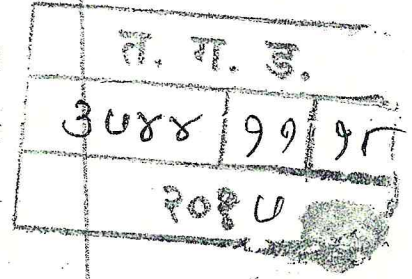 त. ग. ड.
३७४४ ११ १८
२०१७